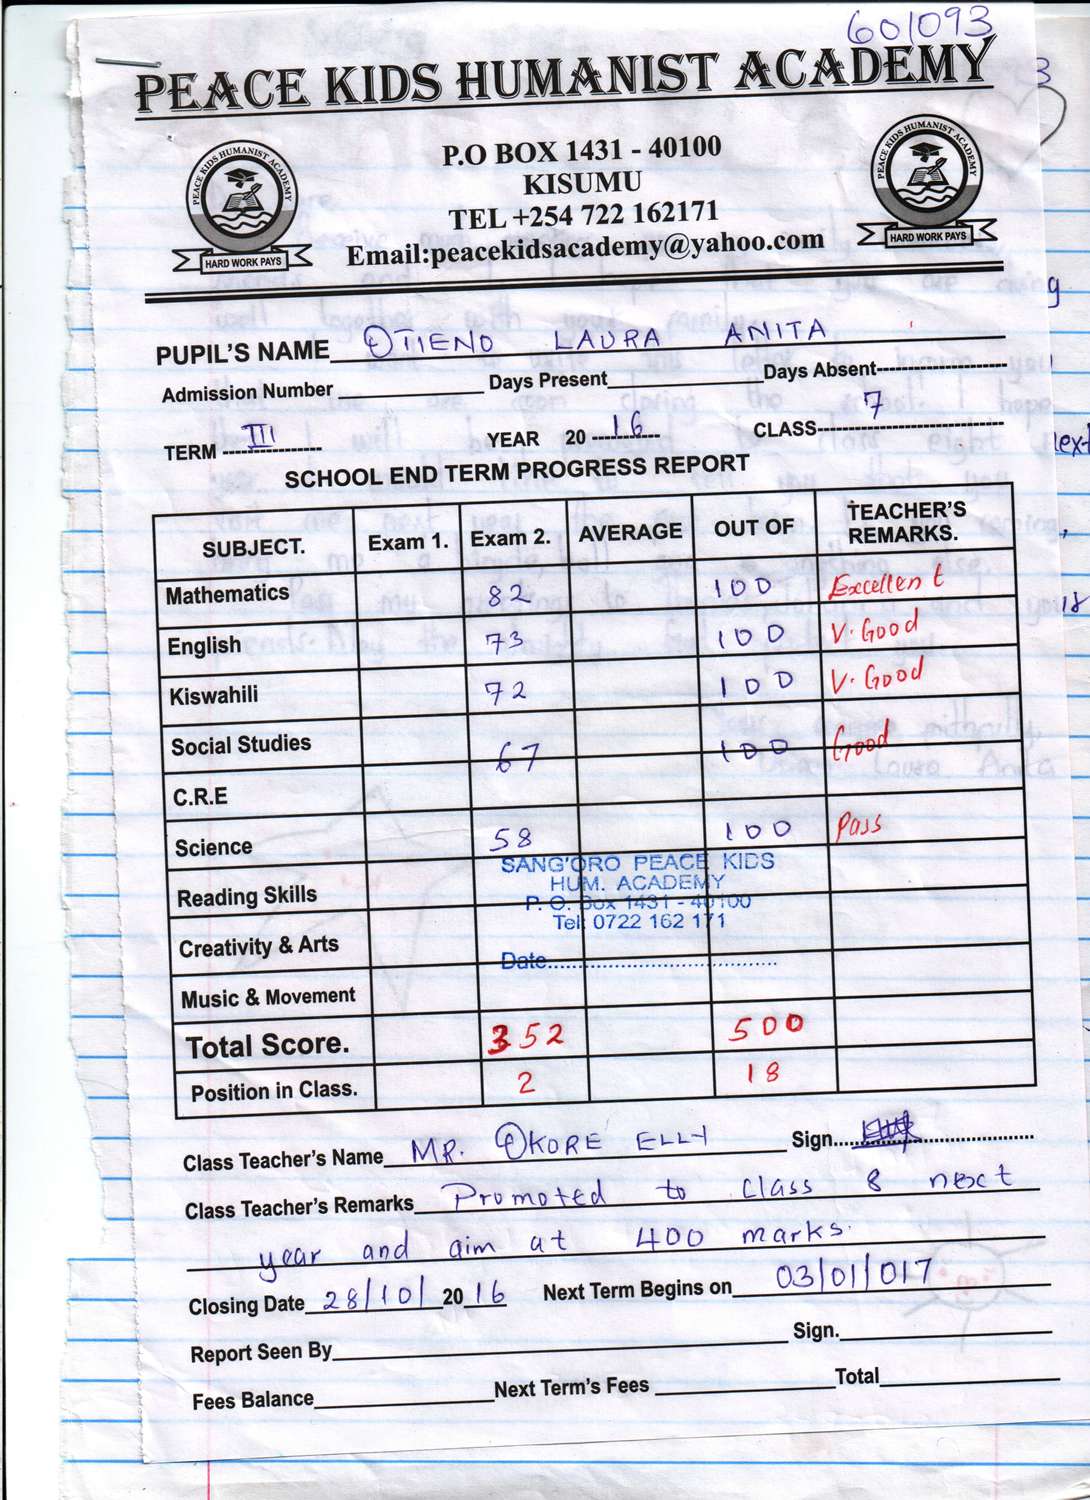 601093
PEACE KIDS HUMANIST ACADEMY
3
PEACE KIDS HUMANIST ACADEMY
HARD WORK PAYS
P.O BOX 1431 - 40100
KISUMU
TEL +254 722 162171
Email:peacekidsacademy@yahoo.com
PEACE KIDS HUMANIST ACADEMY
HARD WORK PAYS
PUPIL'S NAME OTIENO LAURA ANITA
Admission Number Days Present Days Absent
TERM III YEAR 2016 CLASS 7
SCHOOL END TERM PROGRESS REPORT
SUBJECT. Exam 1. Exam 2. AVERAGE OUT OF TEACHER'S REMARKS.
Mathematics 82 100 Excellent
English 73 100 V. Good
Kiswahili 72 100 V. Good
Social Studies 67 100 Good
C.R.E
Science 58 100 Pass
SANG'ORO PEACE KIDS
HUM. ACADEMY
P. O. Box 1431 - 40100
Tel: 0722 162 171
Date
Reading Skills
Creativity & Arts
Music & Movement
Total Score. 352 500
Position in Class. 2 18
Class Teacher's Name MR. OKORE ELLY Sign
Class Teacher's Remarks Promoted to class 8 next
year and aim at 400 marks.
Closing Date 28/10/2016 Next Term Begins on 03/01/017
Report Seen By Sign.
Fees Balance Next Term's Fees Total